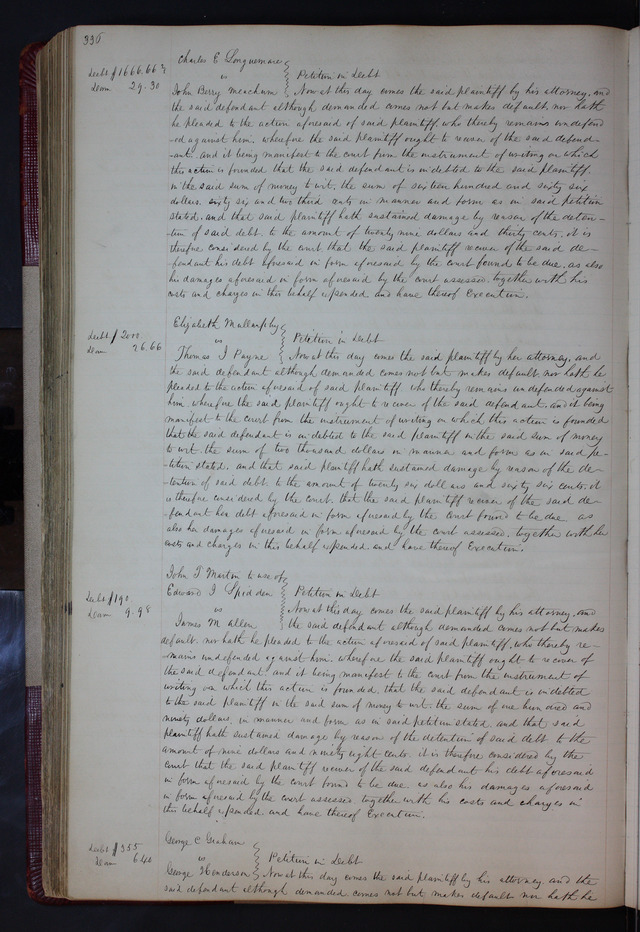 336
Charles E Longuemare
Debt $1666.66 2/3 vs Petition in Debt
Dam 29.30 John Berry Meacham Now at this day comes the said plaintiff by his attorney, and
the said defendant although demanded comes not but makes default, nor hath
he pleaded to the action aforesaid of said plaintiff, who thereby remains undefend
-ed against him. wherefore the said plaintiff ought to recover of the said defend-
-ant. and it being manifest to the court from the instrument of writing on which
this action is founded that the said defendant is indebted to the said plaintiff,
in the said sum of money to wit. the sum of sixteen hundred and sixty six
dollars. sixty six and two third cents in manner and form as in said petition
stated. and that said plaintiff hath sustained damage by reason of the deten-
-tion of said debt. to the amount of twenty nine dollars and thirty cents. it is
therefore considered by the court that the said plaintiff recover of the said de-
-fendant his debt aforesaid in form aforesaid by the court found to be due. as also
his damages aforesaid in form aforesaid by the court assessed. together with his
costs and charges in this behalf expended. and have thereof Execution.
Elizabeth Mullanphy
Debt $2000 vs Petition in Debt
Dam 26.66 Thomas J Payne Now at this day comes the said plaintiff by her attorney, and
the said defendant although demanded comes not but makes default nor hath he
pleaded to the action aforesaid of said plaintiff. who thereby remains undefended against
him wherefore the said plaintiff ought to recover of the said defendant. and it being
manifest to the court from the instrument of writing on which this action is founded
that the said defendant is indebted to the said plaintiff in the said sum of money
to wit. the sum of two thousand dollars in manner and form as in said pe-
-tition stated. and that said plaintiff hath sustained damage by reason of the de-
-tention of said debt. to the amount of twenty six dollars and sixty six cents. it
is therefore considered by the court. that the said plaintiff recover of the said de-
-fendant her debt aforesaid in form aforesaid by the court found to be due as
also her damages aforesaid in form aforesaid by the court assessed. together with her
costs and charges in this behalf expended. and have thereof Execution.
John T Martin to use of
Debt $190 Edward J Petition in Debt
Dam 9.98 vs Now at this day comes the said plaintiff by his attorney. and
James M Allen the said defendant although demanded comes not but makes
default. nor hath he pleaded to the action aforesaid of said plaintiff, who thereby re-
-mains undefended against him. wherefore the said plaintiff ought to recover of
the said defendant. and it being manifest to the court from the instrument of
writing on which this action is founded, that the said defendant is indebted
to the said plaintiff in the said sum of money to wit. the sum of one hundred and
ninety dollars, in manner and form as in said petition stated. and that said
plaintiff hath sustained damage by reason of the detention of said debt to the
amount of nine dollars and ninety eight cents. it is therefore considered by the
court that the said plaintiff recover of the said defendant his debt aforesaid
in form aforesaid by the court found to be due. as also his damages aforesaid
in form aforesaid by the court assessed together with his costs and charges in
this behalf expended. and have thereof Execution.
George C Graham
Debt $355 vs Petition in Debt
Dam 6.40 George Henderson Now at this day comes the said plaintiff by his attorney. and the
said defendant although demanded comes not but makes default nor hath he